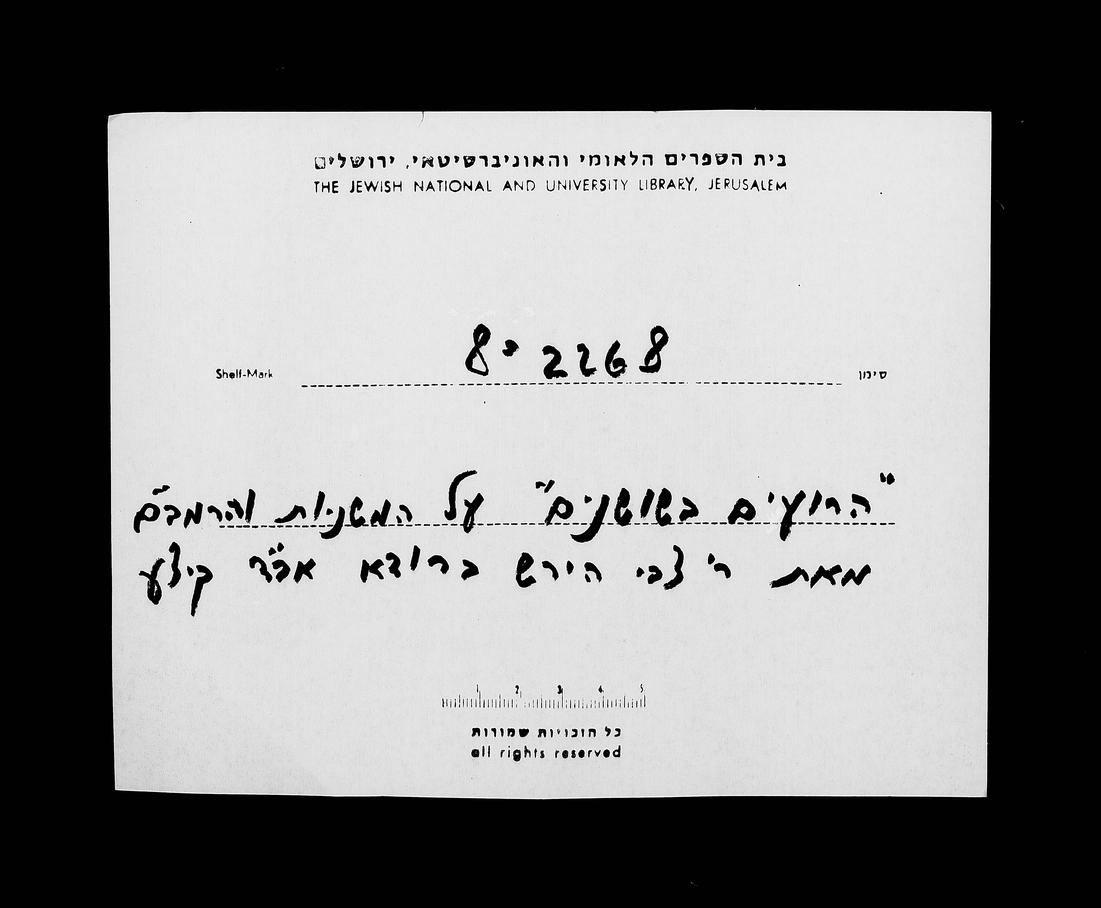 בית הספרים הלאומי והאוניברסיטאי, ירושלים
THE JEWISH NATIONAL AND UNIVERSITY LIBRARY, JERUSALEM
Shelf-Mark 8° 2268 סימן
"הרועים בשושנים" על המשניות והרמב"ם
מאת ר' צבי הירש ברודא אב"ד קיצע
1 2 3 4 5
כל הזכויות שמורות
all rights reserved